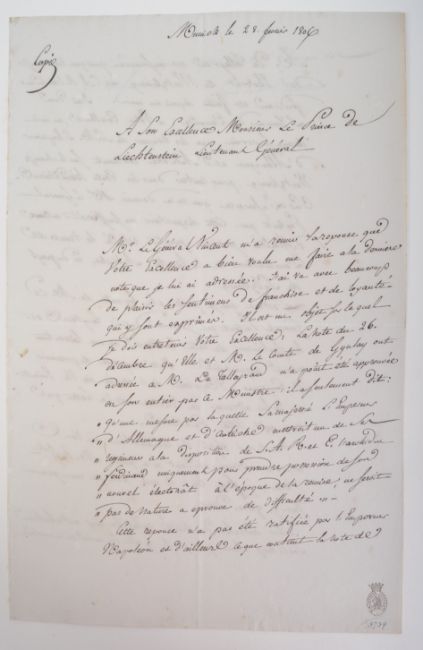 Munich le 28 janvier 1806
Copie
A Son Excellence Monsieur Le Prince de
Liechtenstein Lieutenant Général
Mr. Le Général Vincent m'a remis la reponse que
Votre Excellence a bien voulu me faire a la derniere
note que je lui ai adressée. J'ai vu avec beaucoup
de plaisir les sentimens de franchise et de loyauté
qui y sont exprimés. Il est un objet sur lequel
je dois entretenir Votre Excellence; la note du 26.
décembre qu'Elle et M. le Comte de Gyulay ont
adressé a M. de Talleyrand n'a point été approuvée
en son entier par ce Ministre; il a seulement dit:
" qu'une mesure par laquelle Sa majesté l'Empereur
" d'Allemagne et d'Autriche mettroit un de ses
" regimens a la disposition de S.A.R. et E. l'archiduc
" Ferdinand uniquement pour prendre possession de son
" nouvel électorat à l'époque de la remise, ne seroit
" pas de nature a eprouver de difficulté " —
Cette reponse n'a pas été ratifiée par l'Empereur
Napoléon et d'ailleurs ce que contient la note de